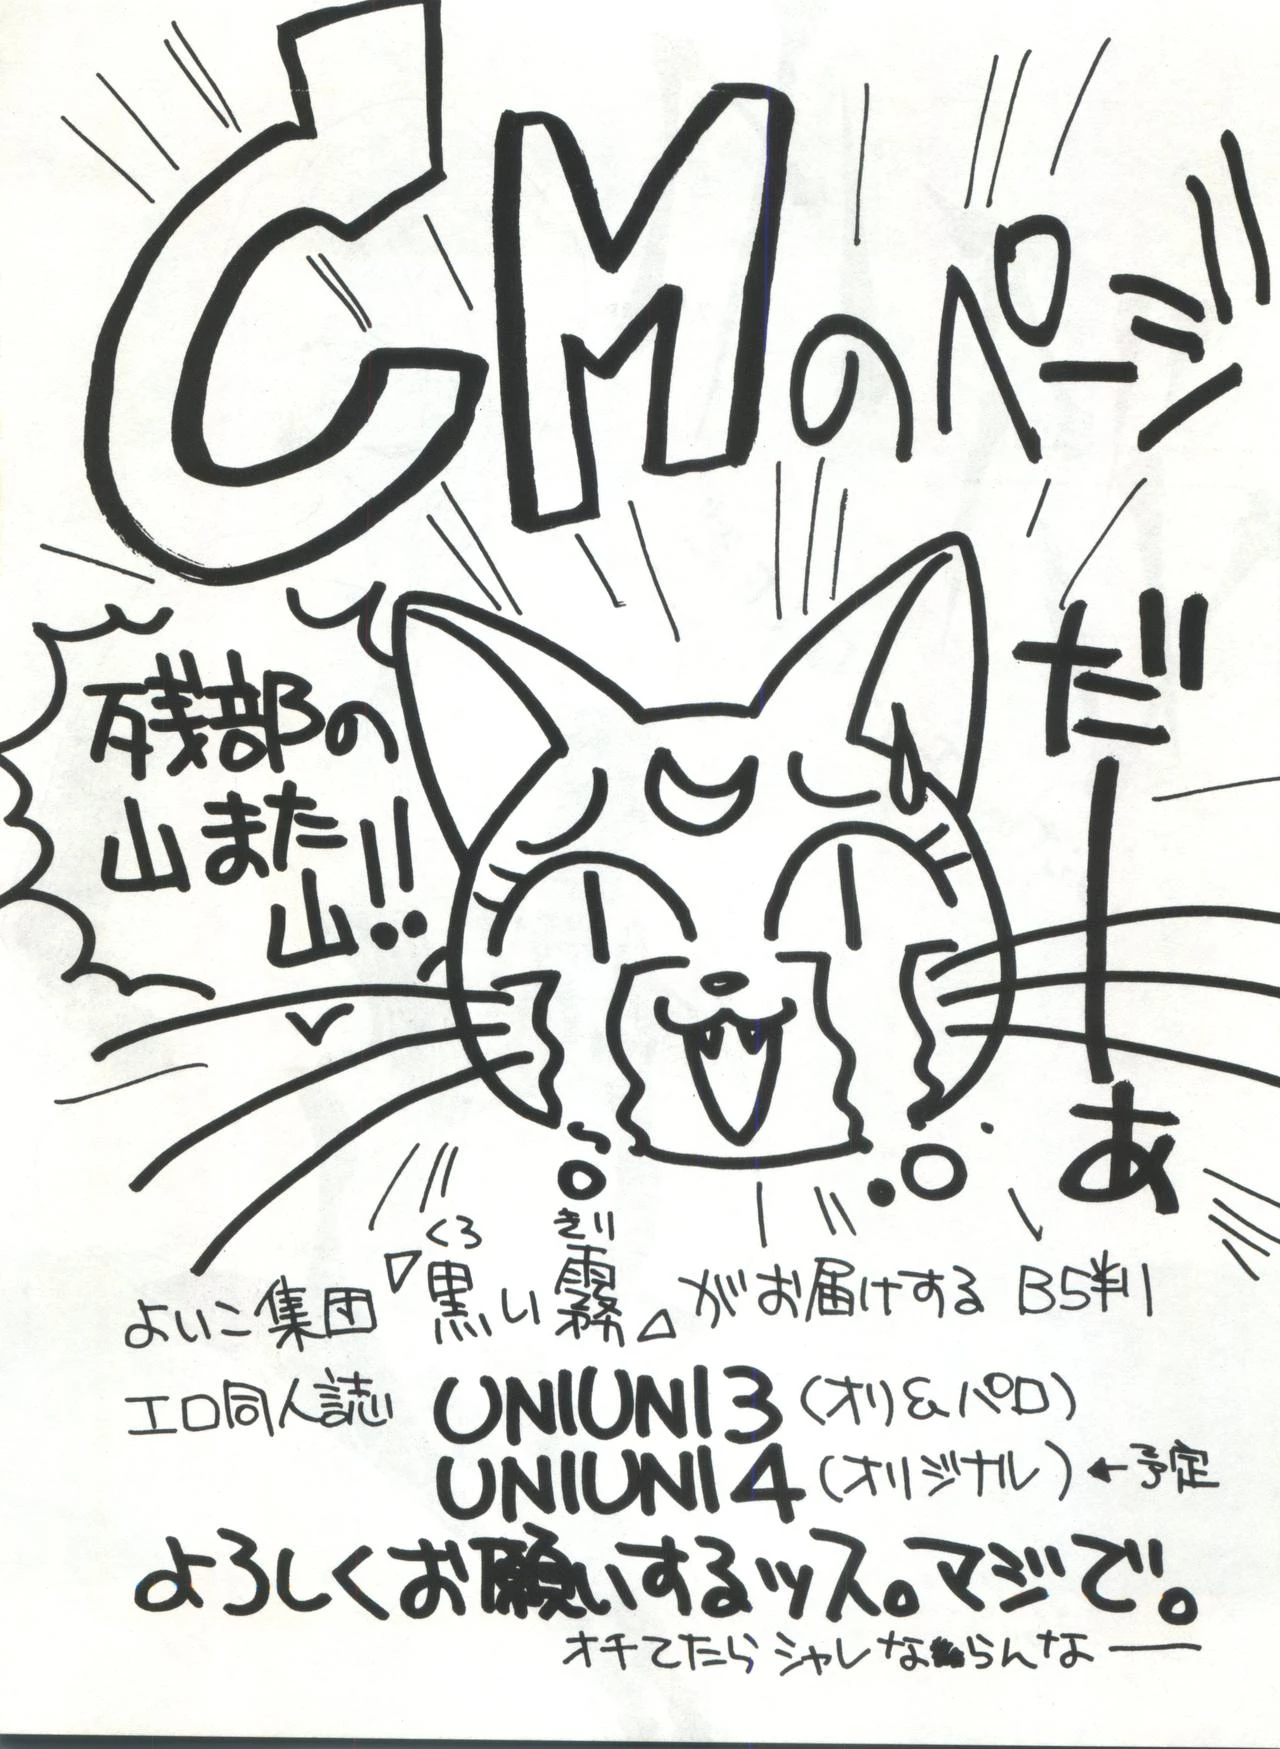 CMのページ
だーあ
残部の
山また
山!!
よいこ集団『黒い霧』がお届けするB5判
くろ
きり
エロ同人誌 UNIUNI 3 (オリ&パロ)
UNIUNI 4 (オリジナル) ←予定
よろしくお願いするッス。マジで。
オチてたらシャレならんなー